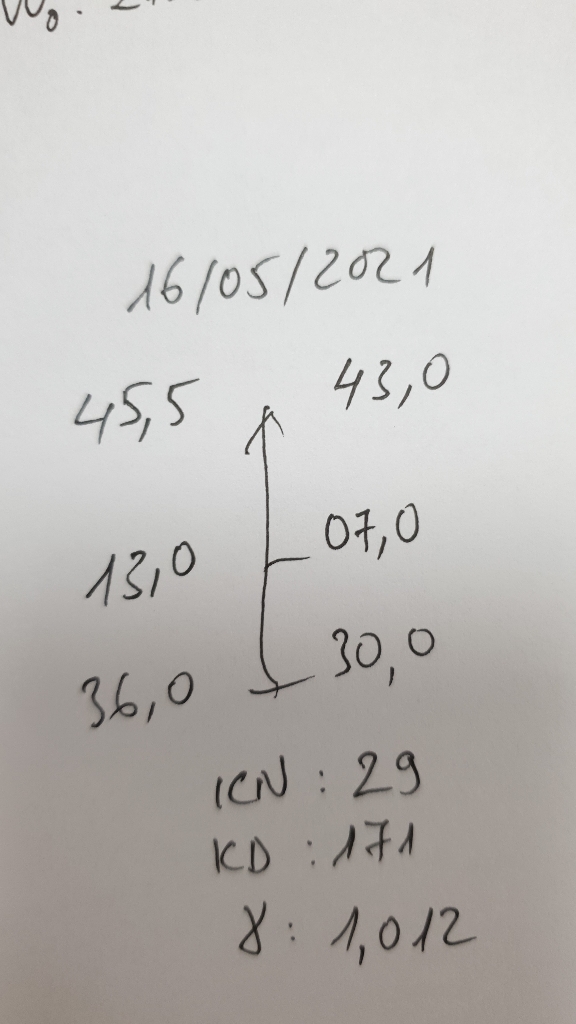 W₀:
16/05/2021
45,5 43,0
13,0 07,0
36,0 30,0
KN : 29
KD : 171
γ : 1,012